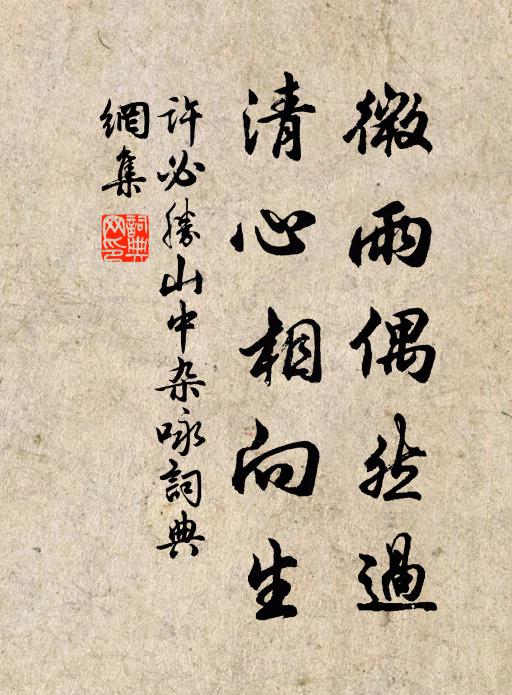 微雨偶然過
清心相向生
許必勝山中杂咏詞典
網集
詞典
网印